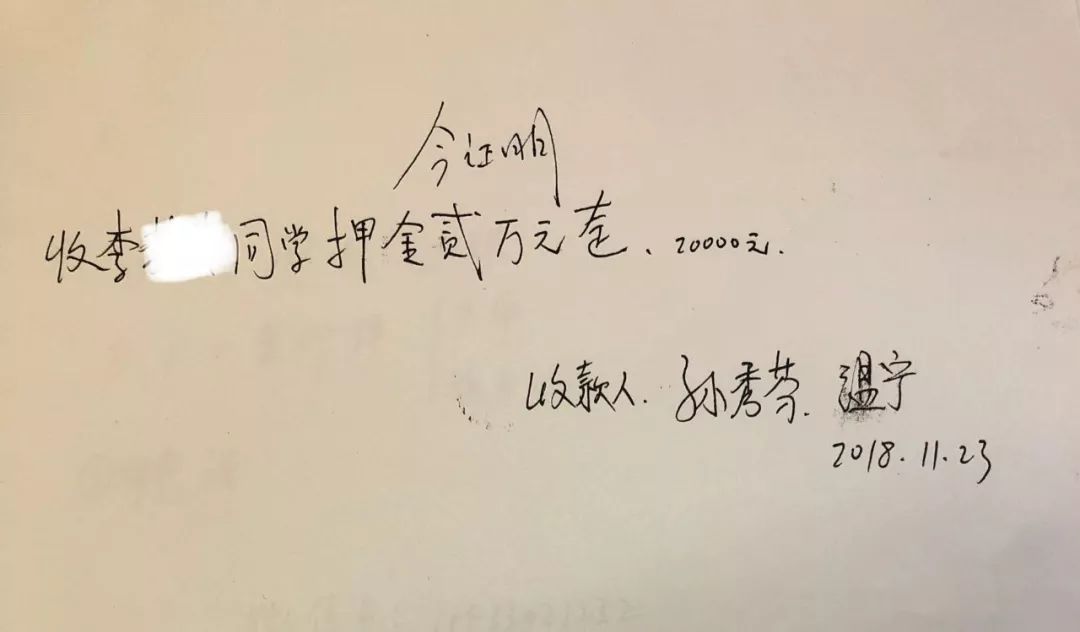 今证明
收李同学押金贰万元整、20000元.
收款人. 孙秀芬. 温宁
2018.11.23